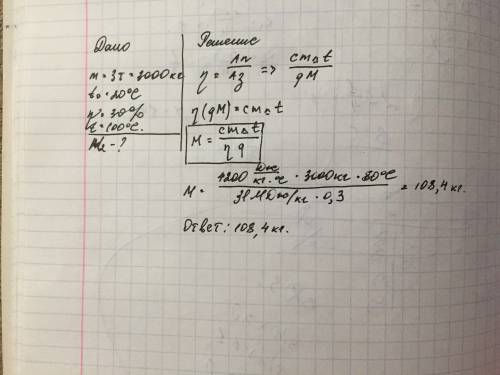 Дано
m = 3т = 3000 кг
t₀ = 20°C
η = 30%
t = 100°C.
M₂ - ?
Решение
η = Aп/Aз => cm△t/qM
η(qM) = cm△t
M = cm△t/η q
M = 4200 Дж/кг·°C · 3000кг · 80°C/31 МДж/кг · 0,3 = 108,4 кг.
Ответ: 108,4 кг.